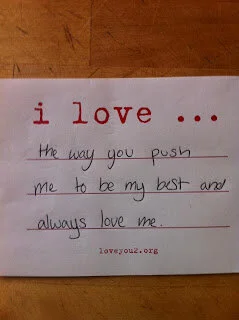 i love ...
the way you push
me to be my best and
always love me.
loveyou2.org